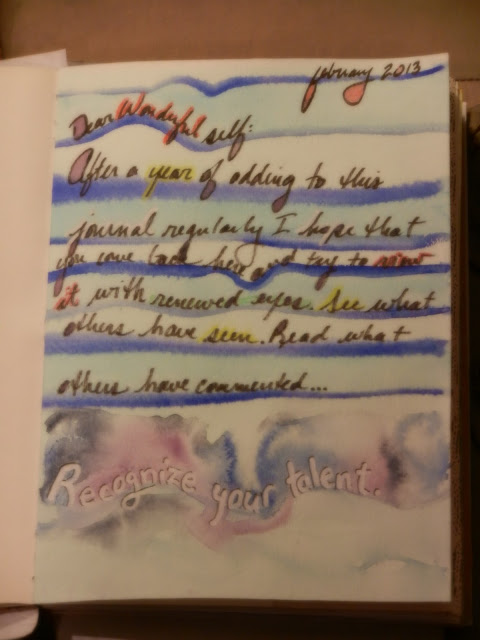 february 2013
Dear Wonderful self:
After a year of adding to this
journal regularly I hope that
you come back here and try to view
it with renewed eyes. See what
others have seen. Read what
others have commented...
Recognize your talent.